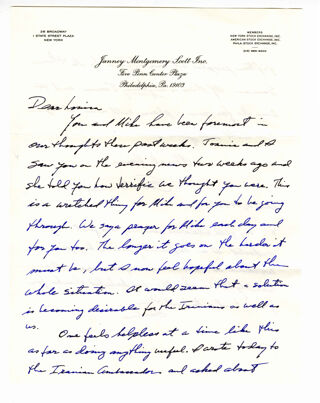 26 BROADWAY
1 STATE STREET PLAZA
NEW YORK
MEMBERS
NEW YORK STOCK EXCHANGE, INC.
AMERICAN STOCK EXCHANGE, INC.
PHILA. STOCK EXCHANGE, INC.
Janney Montgomery Scott Inc.
Five Penn Center Plaza
Philadelphia, Pa. 19103
Dear Louisa
You and Mike have been foremost in
our thoughts these past weeks. Joanie and I
saw you on the evening news two weeks ago and
she told you how terrific we thought you were. This
is a wretched thing for Mike and for you to be going
through. We say a prayer for Mike each day and
for you too. The longer it goes on the harder it
must be, but I now feel hopeful about the
whole situation. It would seem that a solution
is becoming desirable for the Iranians as well as
us.
One feels helpless at a time like this
as far as doing anything useful. I wrote today to
the Iranian Ambassador and asked about